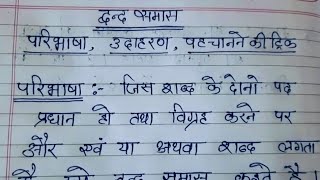 द्वन्द समास
परिभाषा, उदाहरण, पहचानने की ट्रिक
परिभाषा :- जिस शब्द के दोनो पद
प्रधान हो तथा विग्रह करने पर
और एवं या अथवा शब्द लगता
है उसे द्वन्द समास कहते है।